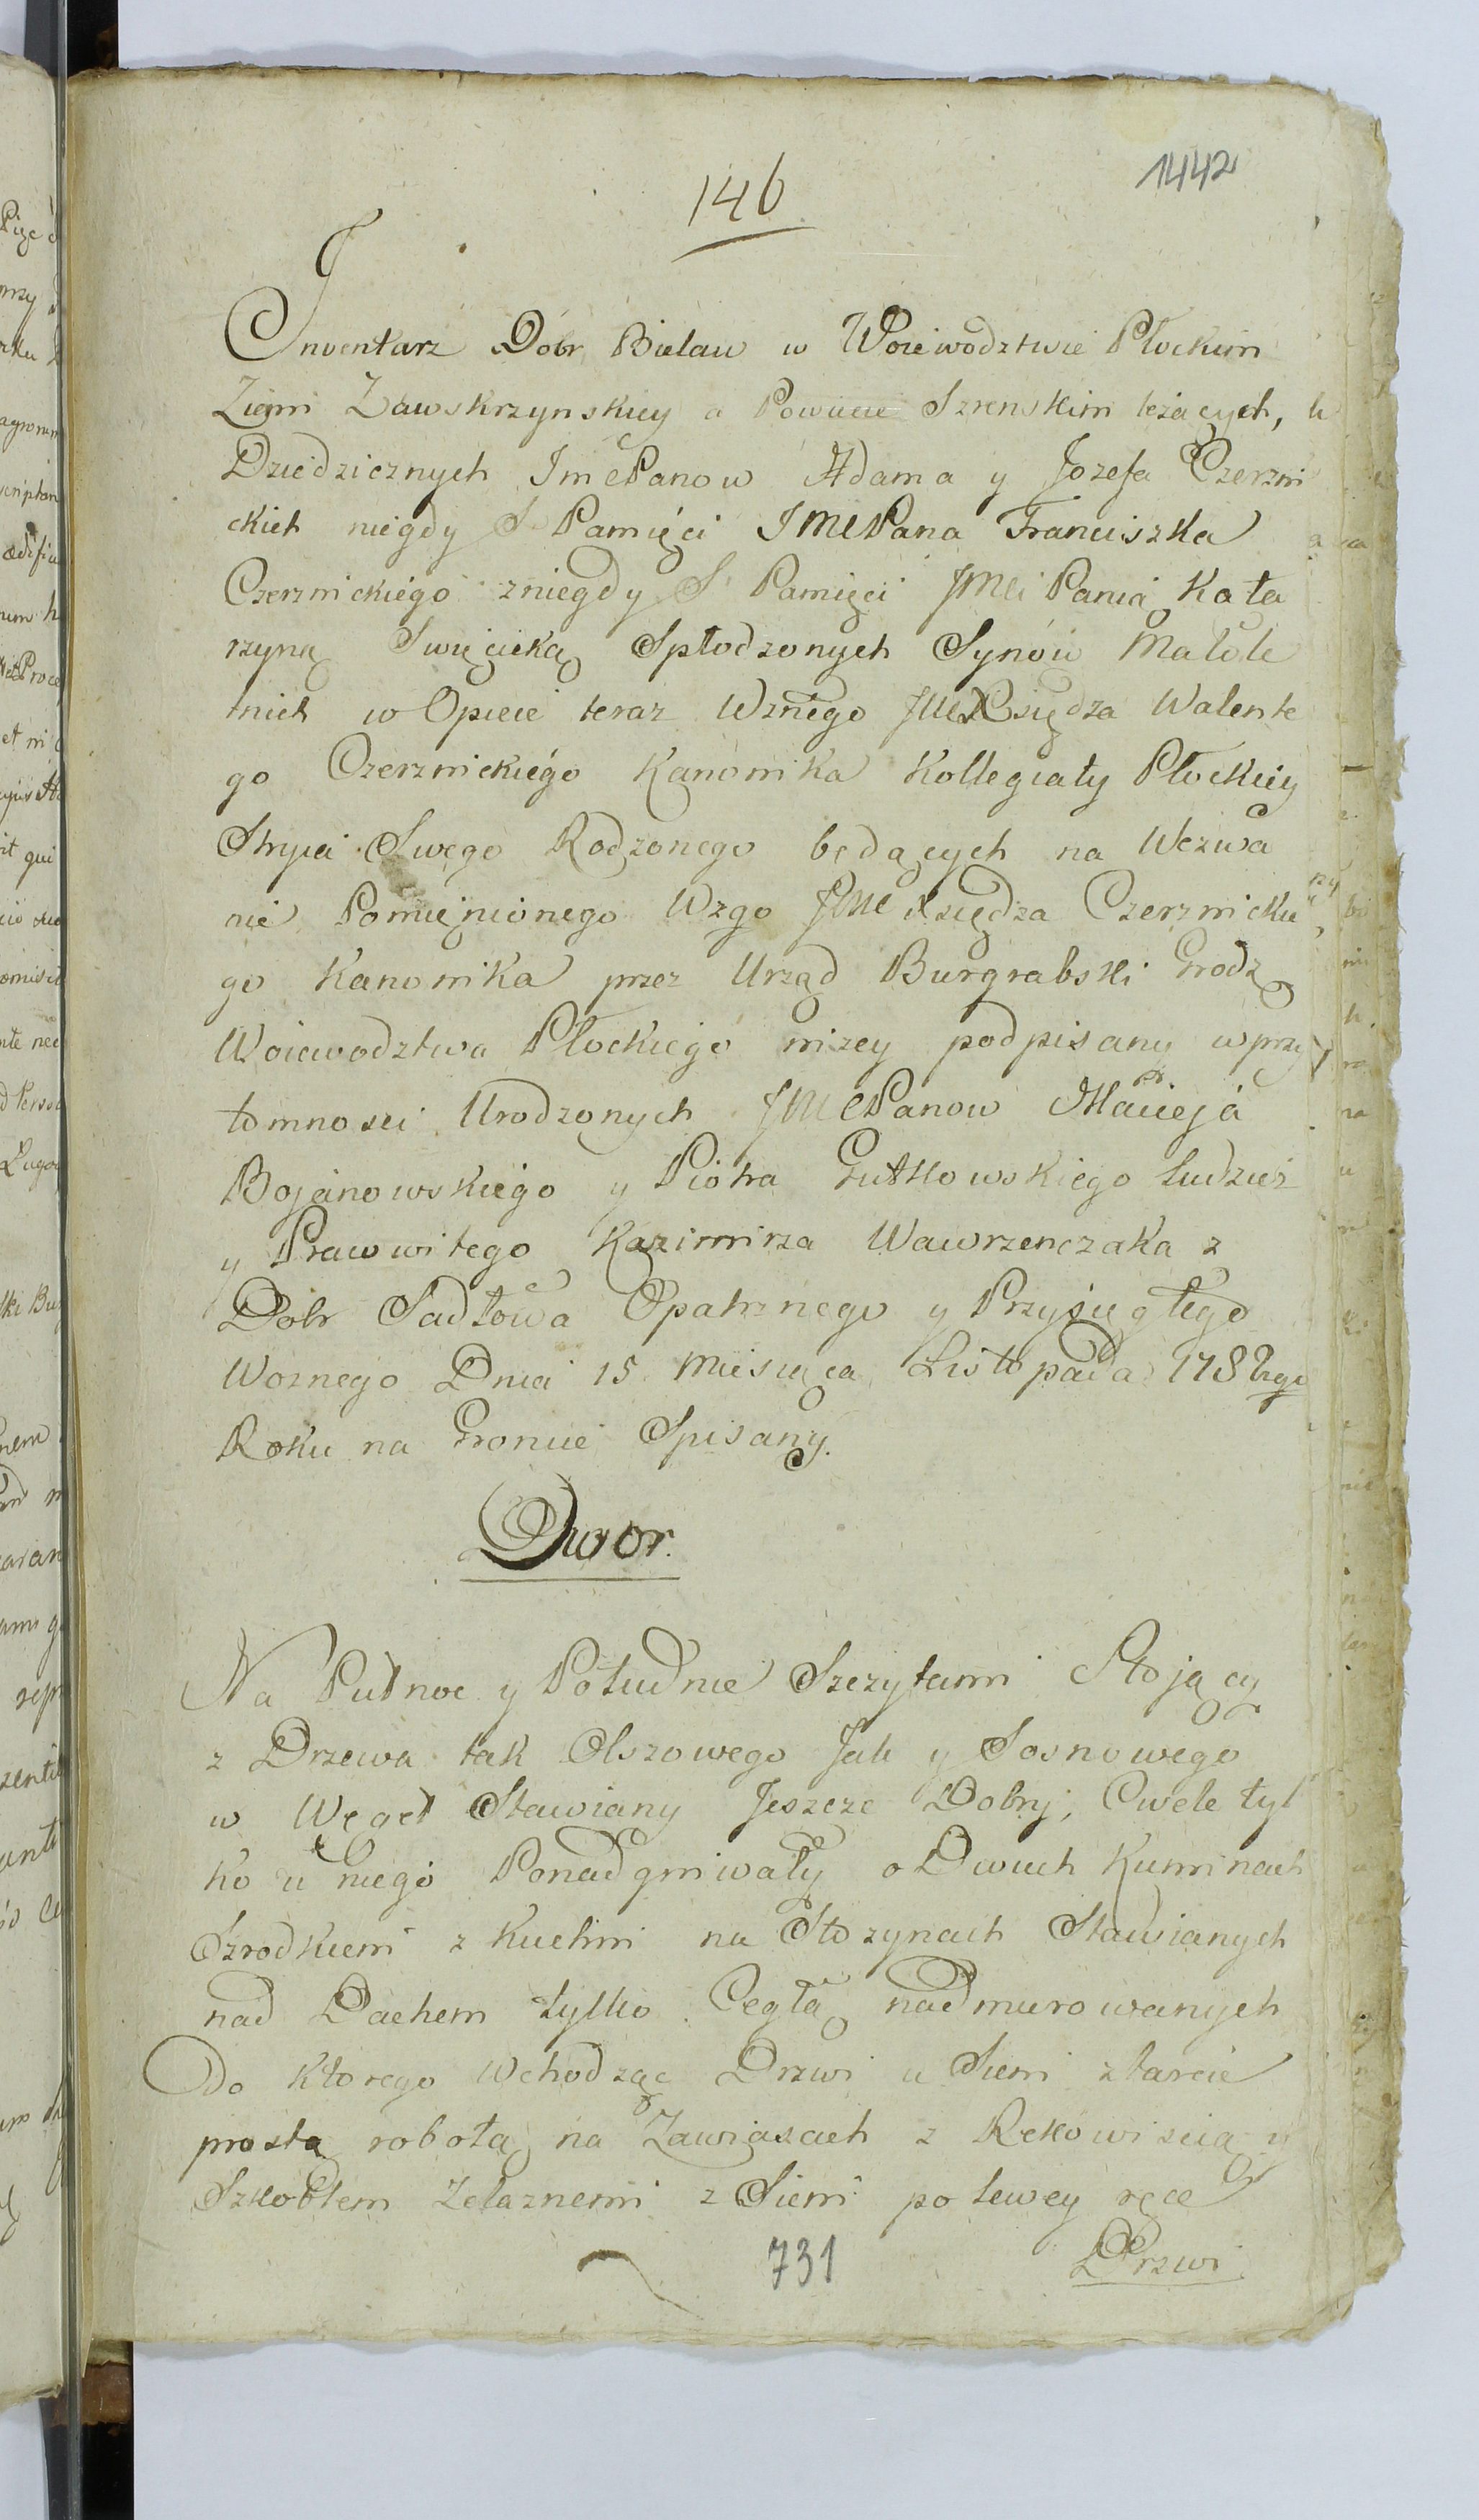 146
1442
Inventarz Dobr Bielaw w Woiewodztwie Płockim
Ziemi Zawskrzynskiey a Powiecie Szrenskim leżących,
Dziedzicznych ImcPanow Adama y Jozefa Czerzni
ckich niegdy S Pamięci JMCPana Franciszka
Czerznickiego zniegdy S Pamięci JMCi Panią Kata
rzyną Swięcicką Spłodzonych Synów Małole
tnich w Opiece teraz Wznego JMCXsiędza Walente
go Czerznickiego Kanonika Kollegiaty Płockiey
Stryia Swego Rodzonego będących na Wezwa
nie Pomięnionego Wzgo JMC Xsiędza Czerznickie
go Kanonika przez Urząd Burgrabski Grodz
Woiewodztwa Płockiego niżey podpisany w przy
tomnosci Urodzonych JMCPanow Macieja
Bojanowskiego y Piotra Gutkowskiego tudzież
y Prawowitego Kazimirza Wawrzenczaka z
Dobr Sadłowa Opatrznego y Przysięgłego
Woznego Dnia 15 Miesiąca Listopada 1782rgo
Roku na Groncie Spisany.
Dwor.
Na Pułnoc y Południe Szczytami Stojący
z Drzewa tak Olszowego Jak y Sosnowego
w Węgeł Stawiany Jeszcze Dobry, Cwele tyl
ko u niego Ponadgniwały o Dwuch Kuminach
Szrodkiem z Kuchni na Stozynach Stawianych
nad Dachem tylko Cegłą nadmurowanych
Do ktorego Wchodząc Drzwi u Sieni ztarcic
prostą robotą na Zawiasach z Rękowiscią y
Szkoblem żelaznemi z Sieni po lewey ręce
731
Drzwi